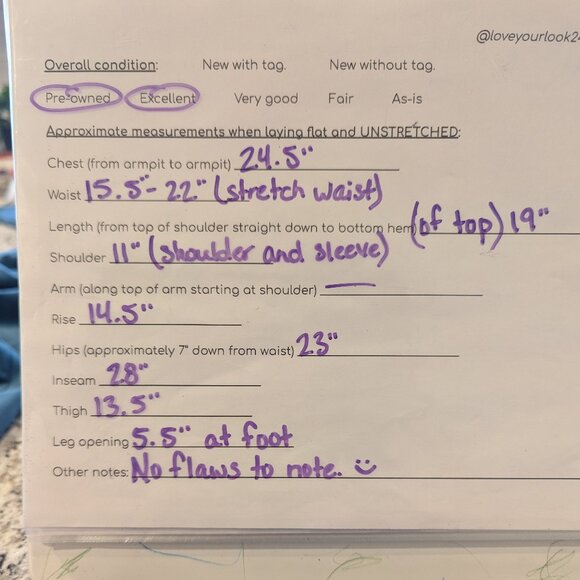 @loveyourlook24
Overall condition: New with tag. New without tag.
Pre-owned Excellent Very good Fair As-is
Approximate measurements when laying flat and UNSTRETCHED:
Chest (from armpit to armpit) 24.5"
Waist 15.5"- 22" (stretch waist)
Length (from top of shoulder straight down to bottom hem) (of top) 19"
Shoulder 11" (shoulder and sleeve)
Arm (along top of arm starting at shoulder) —
Rise 14.5"
Hips (approximately 7" down from waist) 23"
Inseam 28"
Thigh 13.5"
Leg opening 5.5" at foot
Other notes: No flaws to note. :)